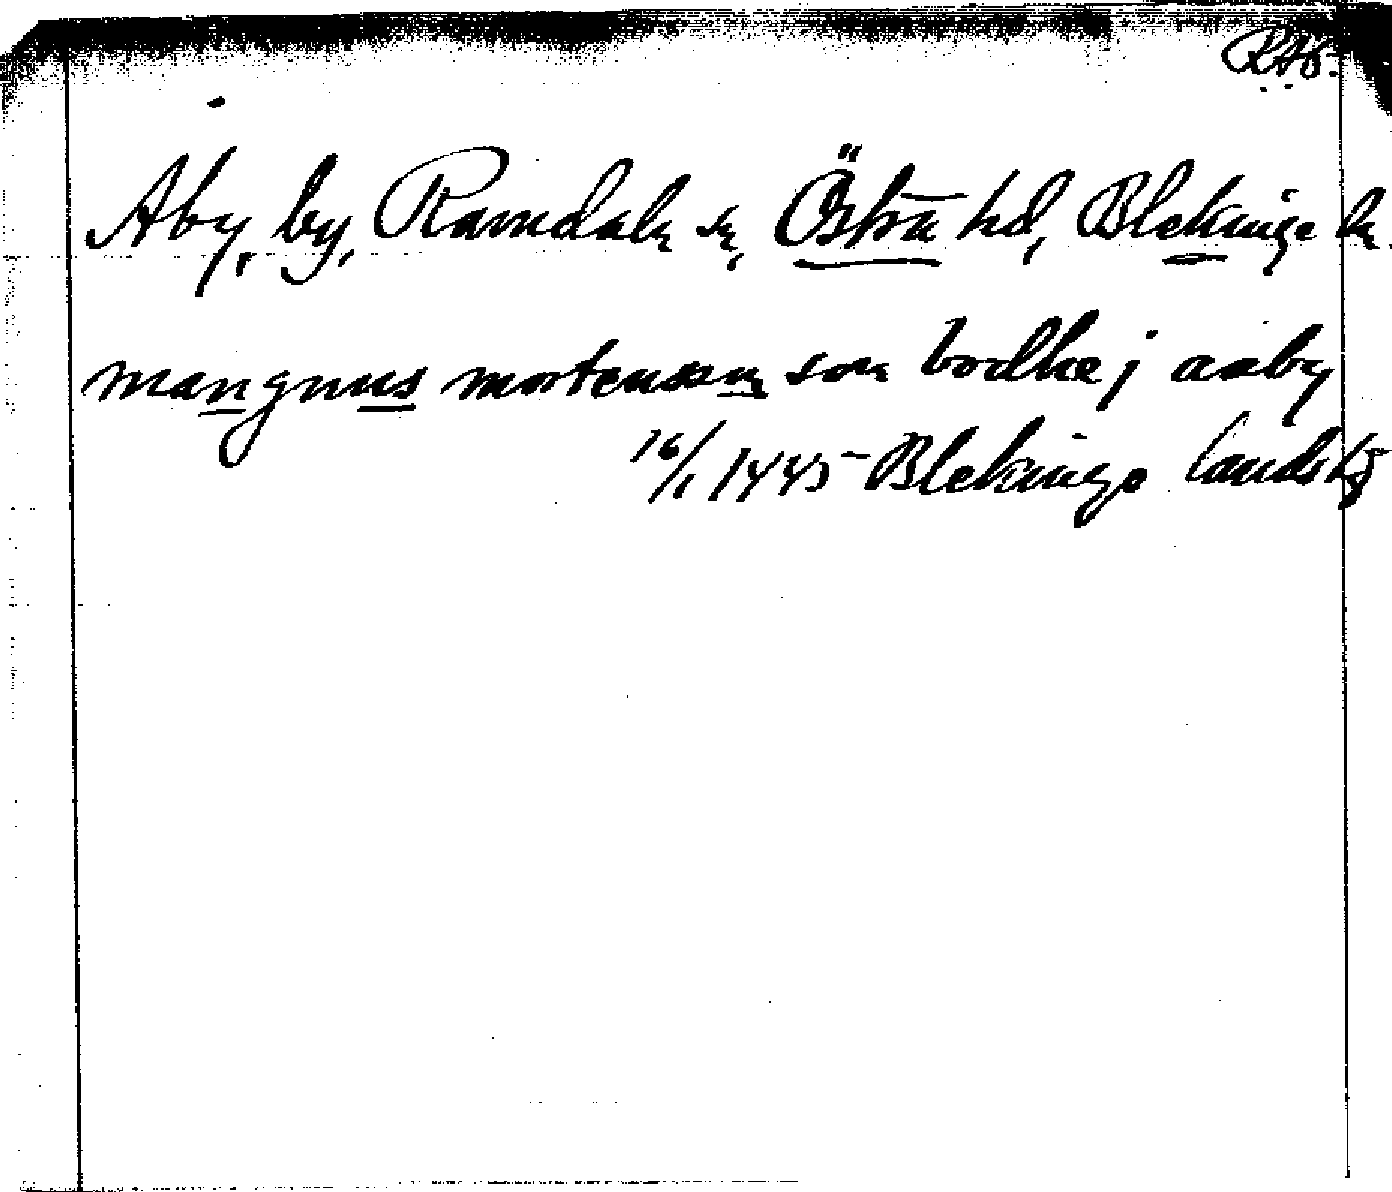 RAÖ.
Åby, by, Ramdala sn, Östra hd, Blekinge ln.
mangnus mortenssen som bodhe j aaby
16/1 1445 Blekinge landskp